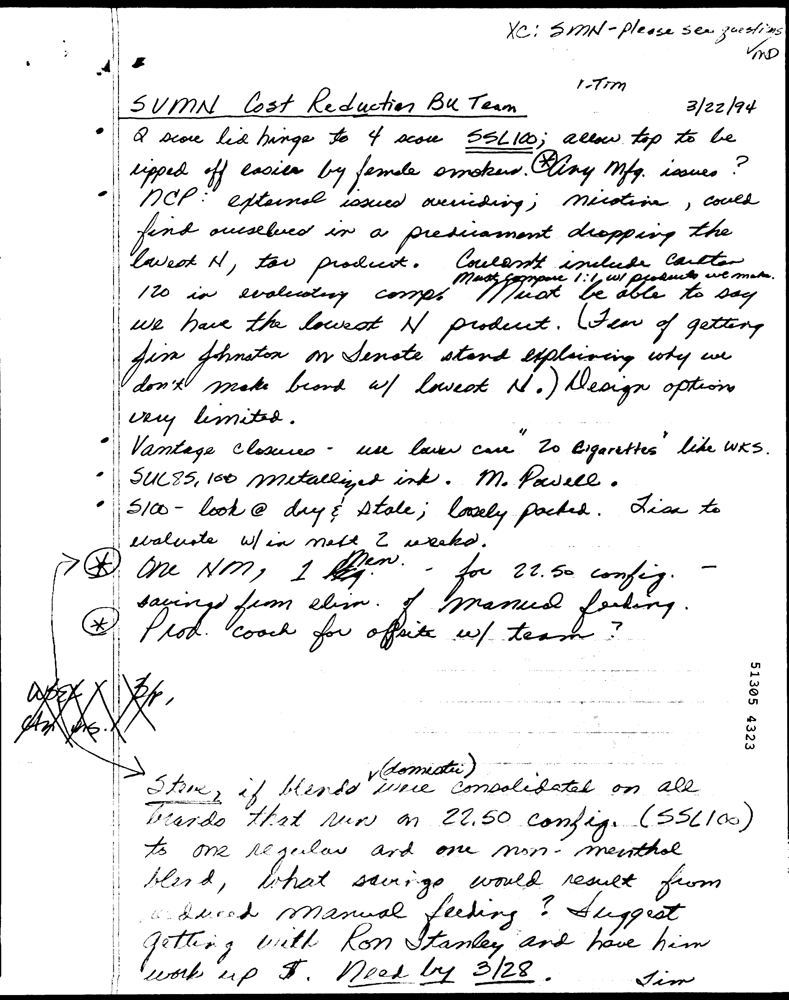 XC: SMN - Please see questions
✓MD
1-Tim
SVMN Cost Reduction BU Team 3/22/94
• 2 score lid hinge to 4 score SSL100; allow top to be
ripped off easier by female smokers. * Any Mfg. issues?
• NCP: external issues overriding; nicotine, could
find ourselves in a predicament dropping the
lowest N, tar product. Couldn't include Carlton
Must compare 1:1 w/ products we make.
120 in evaluatory comp. Must be able to say
we have the lowest N product. (Fear of getting
Jim Johnston on Senate stand explaining why we
don't make brand w/ lowest N.) Design options
very limited.
• Vantage closures - use lower case "20 cigarettes" like WKS.
• SUL85, 100 metallized ink. M. Powell.
• S100 - look @ dry & stale; loosely packed. Lisa to
evaluate w/in next 2 weeks.
* One NM, 1 Men. - for 22.50 config. -
savings from elim. of manual feeding.
* Prod. coach for offsite w/ team?
51305 4323
Steve, if blends (domestic) were consolidated on all
brands that run on 22.50 config. (SSL100)
to one regular and one non-menthol
blend, what savings would result from
reduced manual feeding? Suggest
getting with Ron Stanley and have him
work up $. Need by 3/28.
Tim